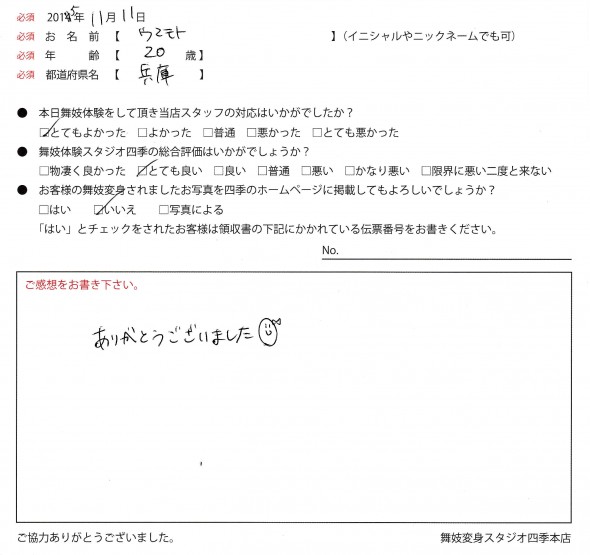 必須 2015年 11月 11日
必須 お 名 前 【 ウエモト 】(イニシャルやニックネームでも可)
必須 年 齢 【 20 歳】
必須 都道府県名 【 兵庫 】
● 本日舞妓体験をして頂き当店スタッフの対応はいかがでしたか?
☑とてもよかった □よかった □普通 □悪かった □とても悪かった
● 舞妓体験スタジオ四季の総合評価はいかがでしょうか?
□物凄く良かった ☑とても良い □良い □普通 □悪い □かなり悪い □限界に悪い二度と来ない
● お客様の舞妓変身されましたお写真を四季のホームページに掲載してもよろしいでしょうか?
□はい ☑いいえ □写真による
「はい」とチェックをされたお客様は領収書の下記にかかれている伝票番号をお書きください。
No.
ご感想をお書き下さい。
ありがとうございました
ご協力ありがとうございました。
舞妓変身スタジオ四季本店